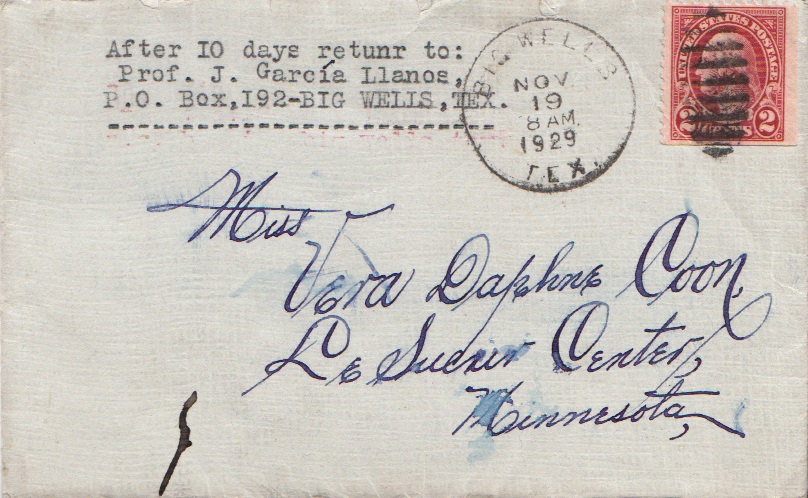 After IO days retunr to:
Prof. J. García Llanos,
P.O. Box,I92-BIG WELLS,TEX.
BIG WELLS
NOV
19
8 AM
1929
TEX.
UNITED STATES POSTAGE
2 CENTS 2
Miss
Vera Daphne Coon,
Le Sueur Center,
Minnesota,